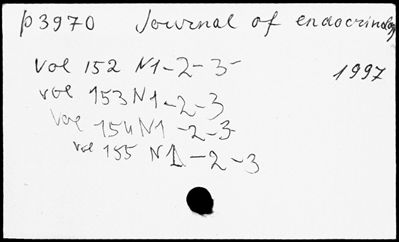 p3970 Journal of endocrinology
vol 152 N1-2-3
1997
vol 153 N1-2-3
vol 154 N1-2-3
vol 155 N1-2-3